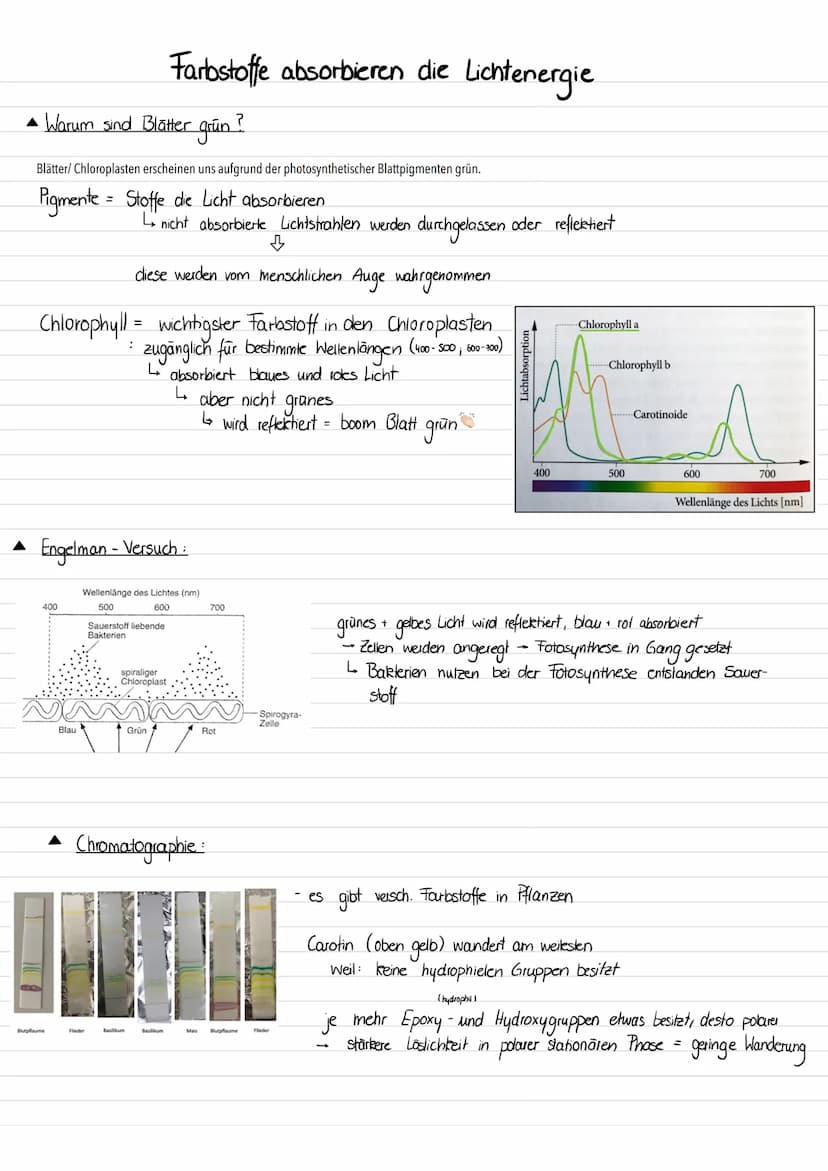 Farbstoffe absorbieren die Lichtenergie
▲ Warum sind Blätter grün?
Blätter/ Chloroplasten erscheinen uns aufgrund der photosynthetischer Blattpigmenten grün.
Pigmente = Stoffe die Licht absorbieren
↳ nicht absorbierte Lichtstrahlen werden durchgelassen oder reflektiert
⇩
diese werden vom menschlichen Auge wahrgenommen
Chlorophyll = wichtigster Farbstoff in den Chloroplasten
: zugänglich für bestimmte Wellenlängen (400-500, 600-700)
↳ absorbiert blaues und rotes Licht
↳ aber nicht grünes
↳ wird reflektiert = boom Blatt grün 👏🏻
Lichtabsorption
Chlorophyll a
Chlorophyll b
Carotinoide
400 500 600 700
Wellenlänge des Lichts [nm]
▲ Engelman - Versuch:
Wellenlänge des Lichtes (nm)
400 500 600 700
Sauerstoff liebende
Bakterien
spiraliger
Chloroplast
Spirogyra-
Zelle
Blau Grün Rot
grünes + gelbes Licht wird reflektiert, blau + rot absorbiert
→ Zellen werden angeregt → Fotosynthese in Gang gesetzt
↳ Bakterien nutzen bei der Fotosynthese entstanden Sauer-
stoff
▲ Chromatographie:
Blutpflaume Flieder Basilikum Basilikum Mais Blutpflaume Flieder
- es gibt versch. Farbstoffe in Pflanzen
Carotin (oben gelb) wandert am weitesten
Weil: keine hydrophielen Gruppen besitzt
(hydrophil)
je mehr Epoxy - und Hydroxygruppen etwas besitzt, desto polarer
→ stärkere Löslichkeit in polarer stationären Phase = geringe Wanderung